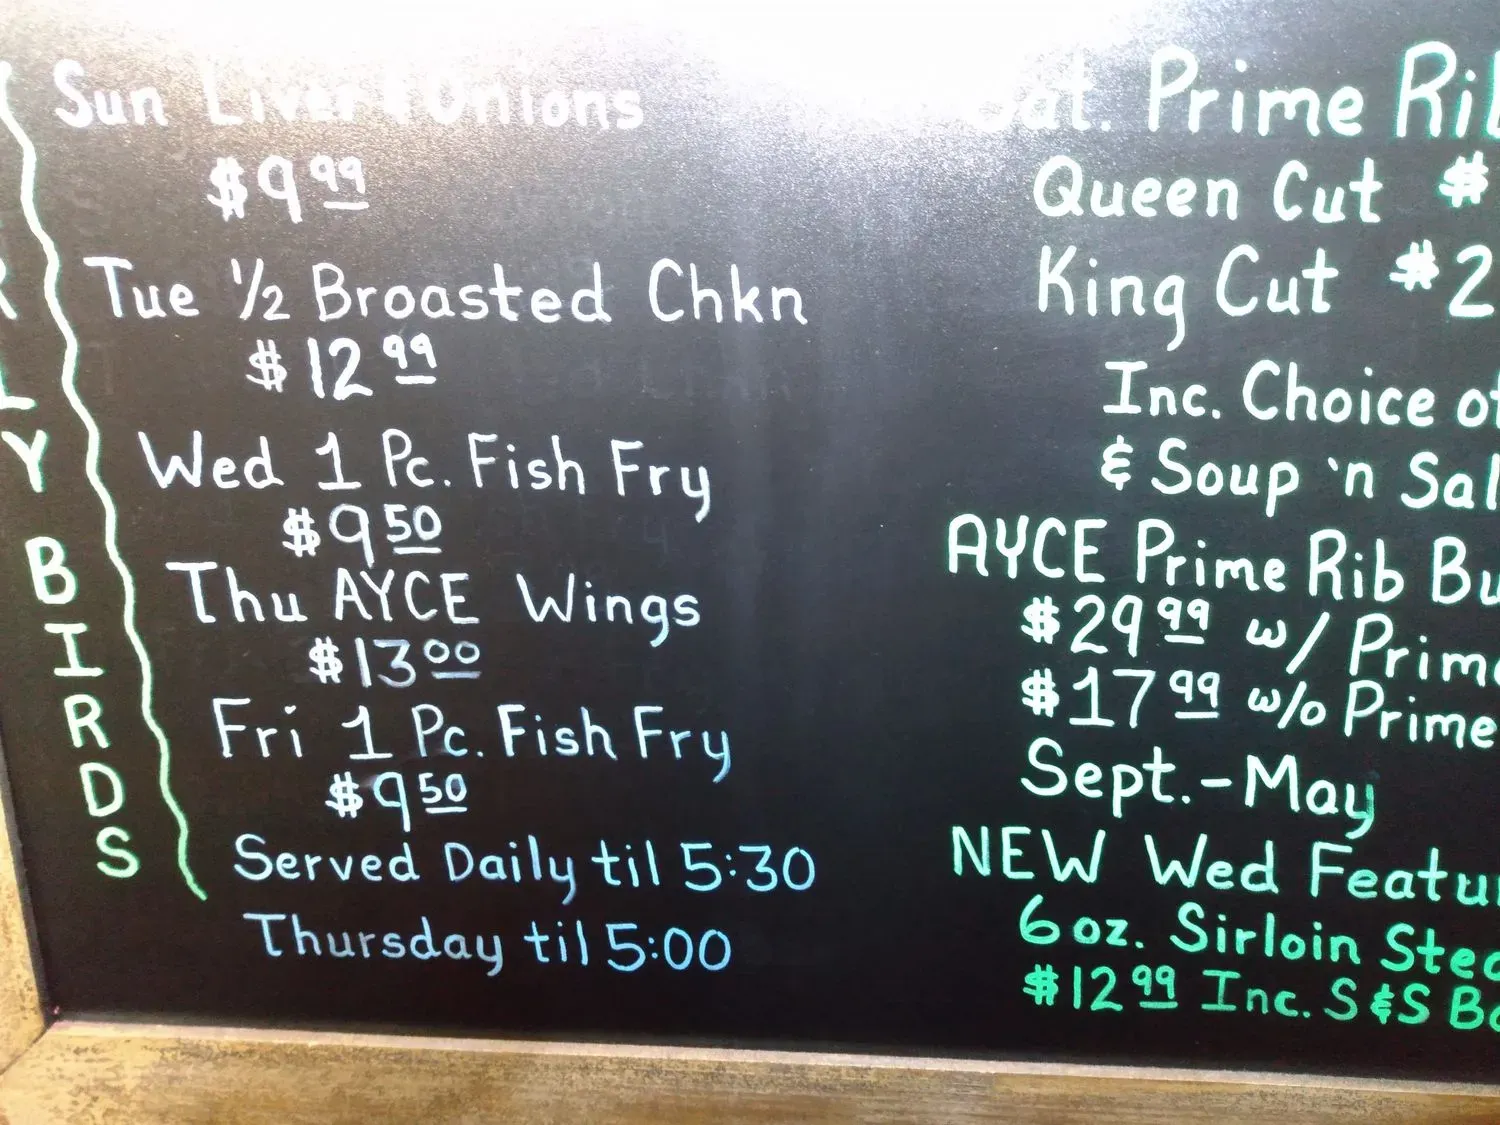 Sun Liver & Onions
$9.99
Tue 1/2 Broasted Chkn
$12.99
Wed 1 Pc. Fish Fry
$9.50
Thu AYCE Wings
$13.00
Fri 1 Pc. Fish Fry
$9.50
Served Daily til 5:30
Thursday til 5:00
R
L
Y
B
I
R
D
S
Sat. Prime Rib
Queen Cut $
King Cut $2
Inc. Choice of
& Soup 'n Sal
AYCE Prime Rib Bu
$29.99 w/ Prime
$17.99 w/o Prime
Sept.-May
NEW Wed Featur
6 oz. Sirloin Stea
$12.99 Inc. S & S Ba